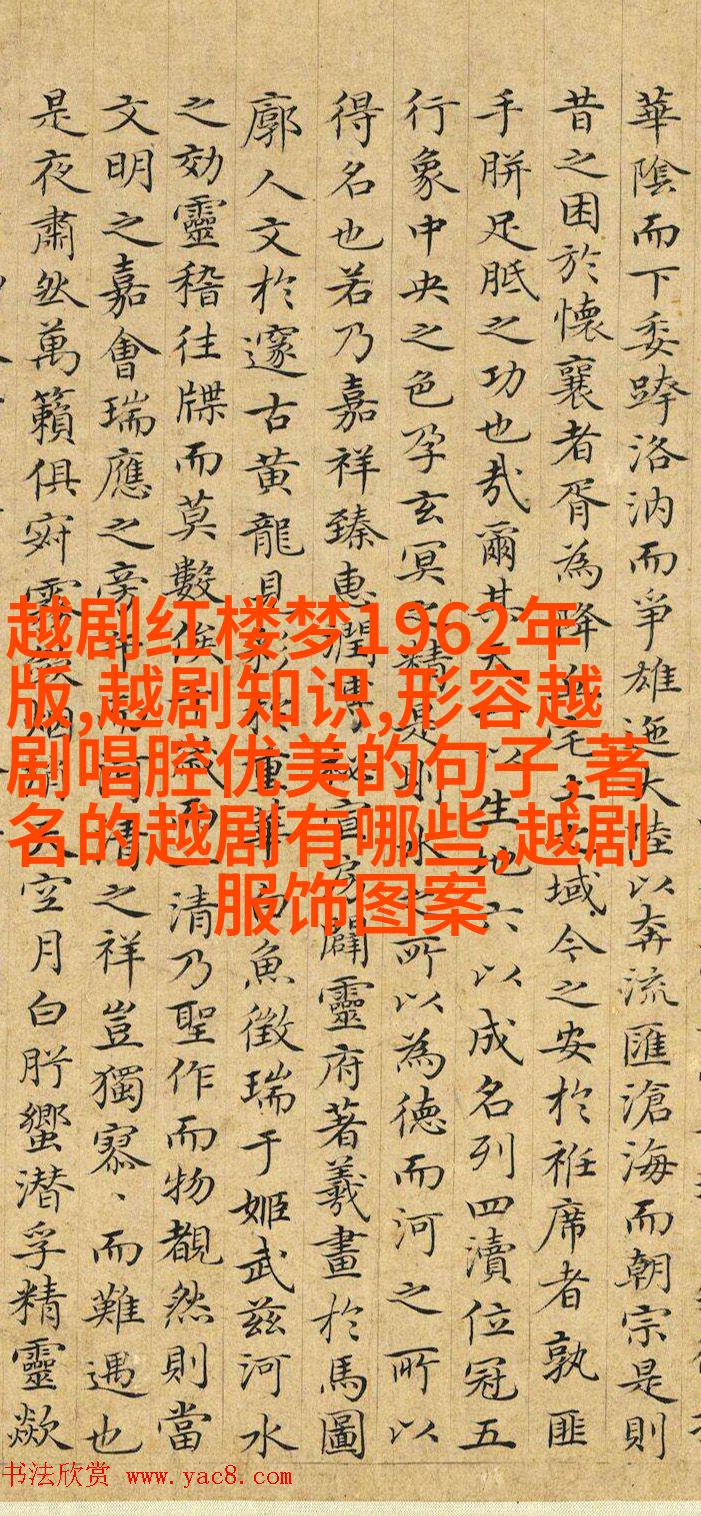 華陰而下委洛汭而爭雄迤大陸以奔流匯滄海而朝宗是則
昔之困於懷襄者胥為降宅土之域今之安於袵席者孰匪
手胼足胝之功也哉爾其天以生地六以成名列四瀆位冠五
行象中央之色孕玄冥之精是則水之所以為德而河之所以
得名也若乃嘉祥臻惠潤闢靈府著羲畫於馬圖
廓人文於邃古黃龍見彩於重華白魚徵瑞于姬武茲河水
之効靈稽往牒而莫數俟歲而清乃聖作而物覩然則當
文明之嘉會瑞應之旁清之祥豈獨寥、而難遇也
是夜肅然萬籟俱寂天空月白肸蠁潛孚精靈歘
越剧红楼梦1962年
版,越剧知识,形容越
剧唱腔优美的句子,著
名的越剧有哪些,越剧
服饰图案
书法欣赏 www.yac8.com